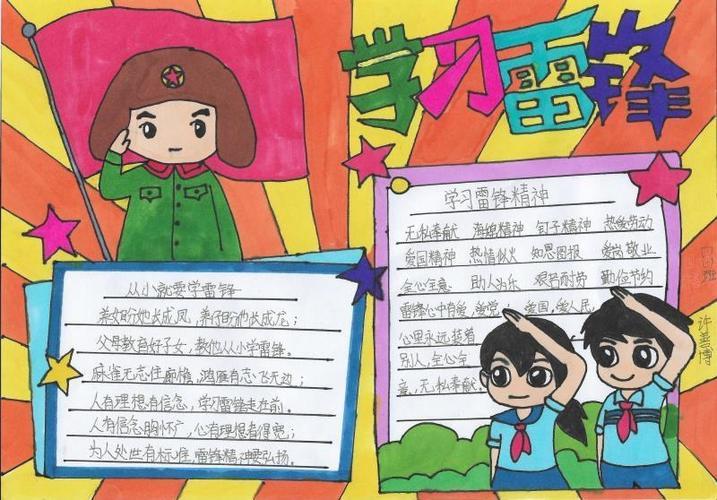 学习雷锋
从小就要学雷锋
养女盼她长成凤，养仔盼他长成龙；
父母教育好子女，教他从小学雷锋。
麻雀无志住廊檐，鸿雁有志飞天边；
人有理想有信念，学习雷锋走在前。
人有信念胸怀广，心有理想有得宽；
为人处世有标准，雷锋精神要弘扬。
学习雷锋精神
无私奉献 海绵精神 钉子精神 热爱劳动
爱国精神 热情似火 知恩图报 爱岗敬业
全心全意 助人为乐 艰苦耐劳 勤俭节约
雷锋心中有爱，爱党；爱国，爱人民；
心里永远装着
别人，全心全
意，无私奉献！
许善博